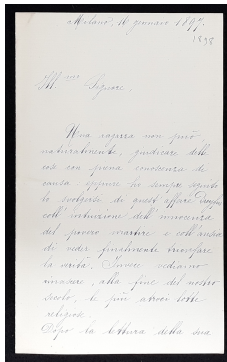 Milano, 16 gennaio 1897.
1898
Ill.mo Signore,
Una ragazza non può,
naturalmente, giudicare delle
cose con piena conoscenza di
causa: eppure ho sempre seguito
lo svolgersi di quest'affare Dreyfus
coll'intuizione dell'innocenza
del povero martire e coll'ansia
di veder finalmente trionfare
la verità. Invece vediamo
rinascere, alla fine del nostro
secolo, le più atroci lotte
religiose.
Dopo la lettura della sua